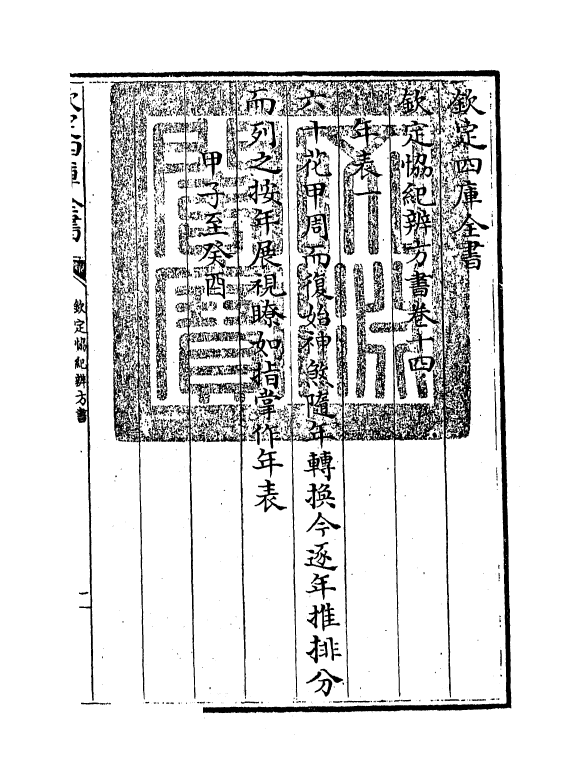 欽定四庫全書
欽定協紀辨方書卷十四
年表一
六十花甲周而復始神煞隨年轉換今逐年推排分
而列之按年展視瞭如指掌作年表
甲子至癸酉
欽定四庫全書
欽定協紀辨方書